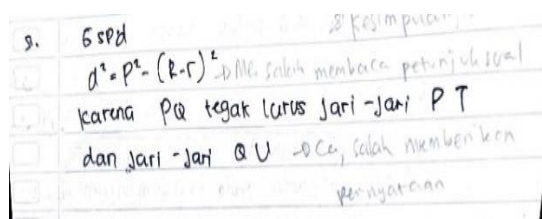 → kesimpulan
9. GSPd
d² = p² - (R-r)² → Me, salah membaca petunjuk soal
karena PQ tegak lurus jari-jari PT
dan jari-jari QU → Ce, salah memberikan
pernyataan